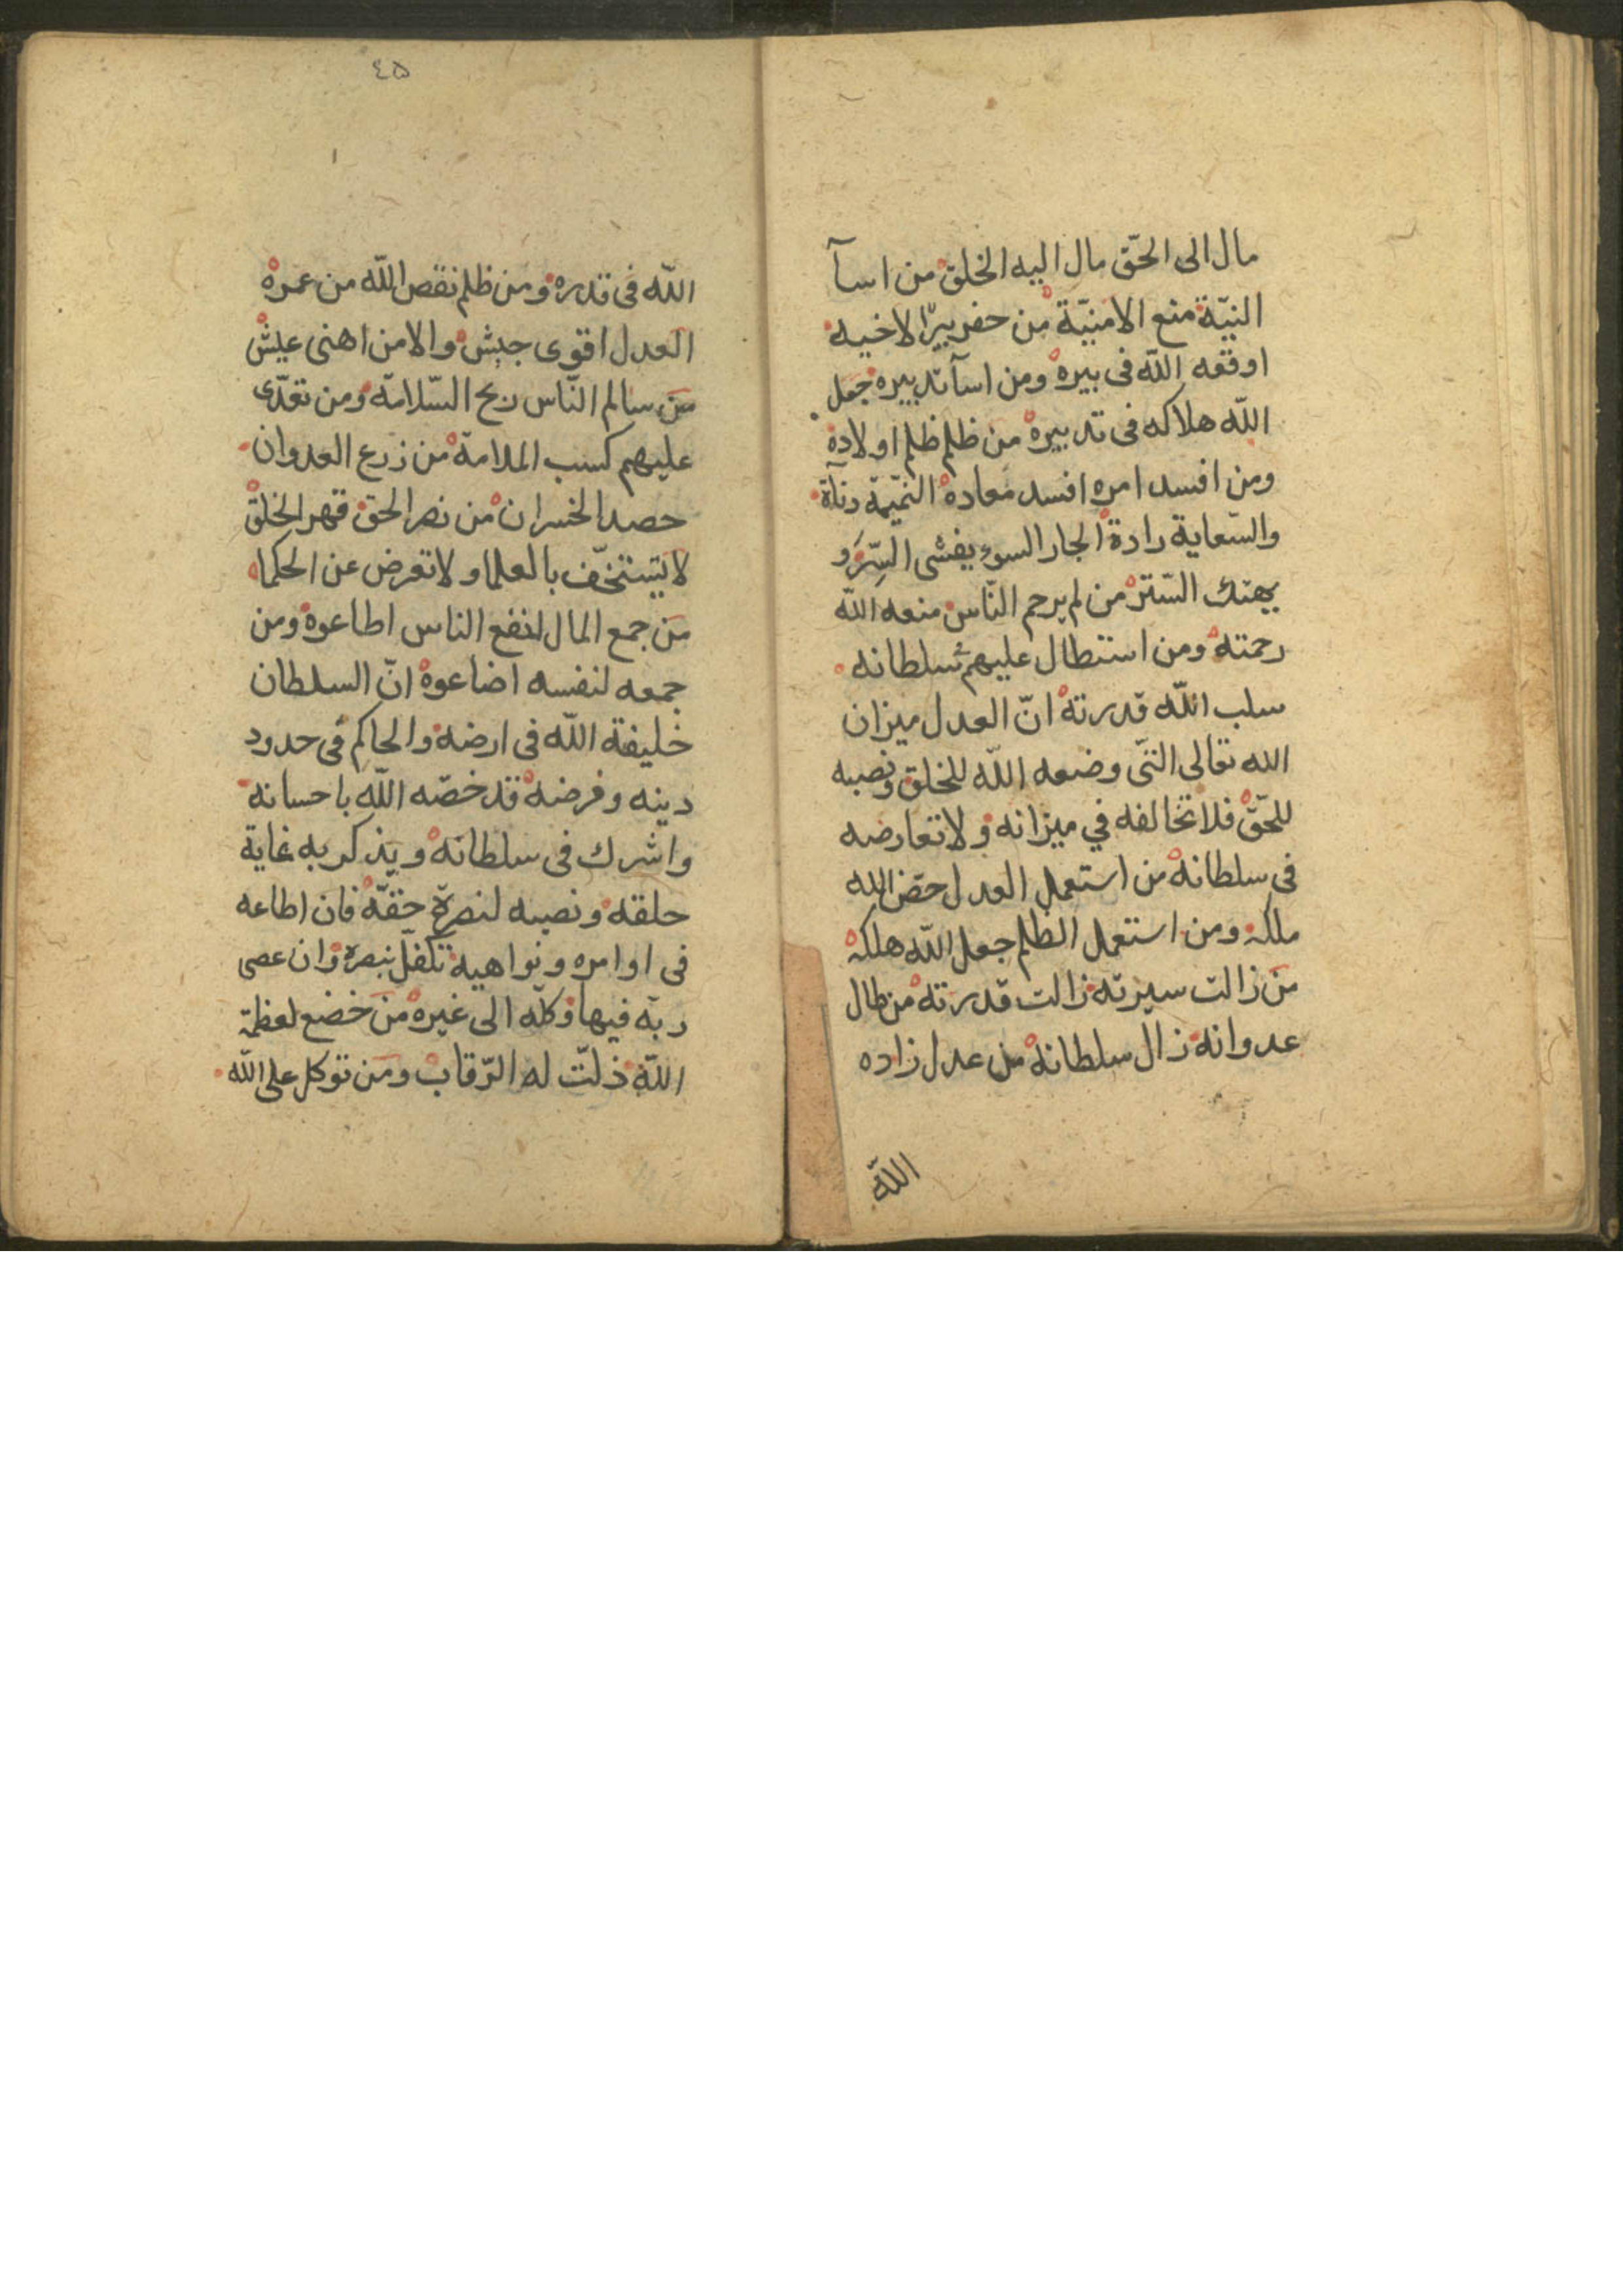 مال الى الحقّ مال اليه الخلق من اسآ
النيّة منع الامنيّة من حفر بيرًا لاخيه
اوقعه اللّه فى بيره ومن اسآ تدبيره جعل
اللّه هلاكه فى تدبيره من ظلم ظلم اولاده
ومن افسد امره افسد معاده النمّيمة دنآة
والسّعاية رادة الجار السوء يفشى السِّرَ و
يهتك السّتر من لم يرحم النّاس منعه اللّه
رحمته ومن استطال عليهم سلطانه
سلب اللّه قدرته انّ العدل ميزان
الله تعالى التّى وضعه اللّه للخلق ونصبه
للحّق فلا تخالفه في ميزانه ولا تعارضه
فى سلطانه من استعمل العدل حصّن الله
ملكه ومن استعمل الظلم جعل اللّه هلكه
من زالت سيرته زالت قدرته من طال
عدوانه زال سلطانه من عدل زاده
اللّه
٤٥
اللّه فى قدره ومن ظلم نقص اللّه من عمره
العدل اقوى جيش والامن اهنى عيش
من سالم النّاس ربح السّلامة ومن تعدّى
عليهم كسب الملامة من زرع العدوان
حصد الخسران من نصر الحق قهر الخلق
لا يتستخفّ بالعلما ولا تعرض عن الحكما
من جمع المال لنفع الناس اطاعوه ومن
جمعه لنفسه اضاعوه انّ السلطان
خليفة اللّه فى ارضه والحاكم فى حدود
دينه وفرضه قد خصّه اللّه باحسانه
واشرك فى سلطانه ويذكر به غاية
حلقه ونصبه لنصرة حقّه فان اطاعه
فى اوامره ونواهيه تكفّل بنصره وان عصى
ربّه فيها وكله الى غيره من خضع لعظمة
اللّه ذلّت له الرّقاب ومن توكل على اللّه